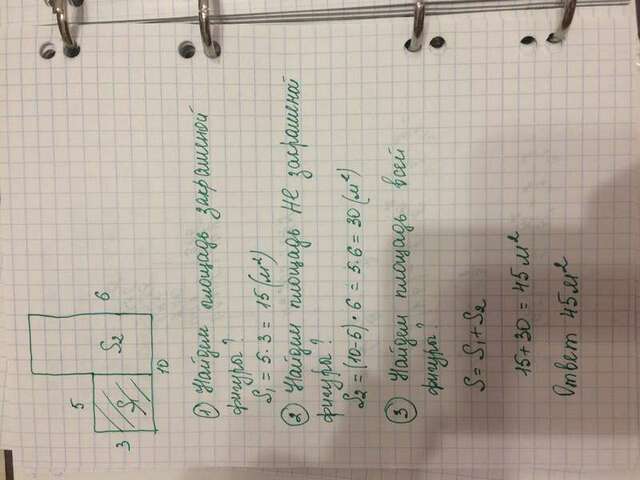 5
3
S₁
S₂
6
10
① Найдем площадь закрашеной
фигуры?
S₁ = 5·3 = 15 (м²)
② Найдем площадь НЕ закрашеной
фигуры?
S₂ = (10-5)·6 = 5·6 = 30 (м²)
③ Найдем площадь всей
фигуры?
S = S₁ + S₂
15+30 = 45 м²
Ответ 45 м²